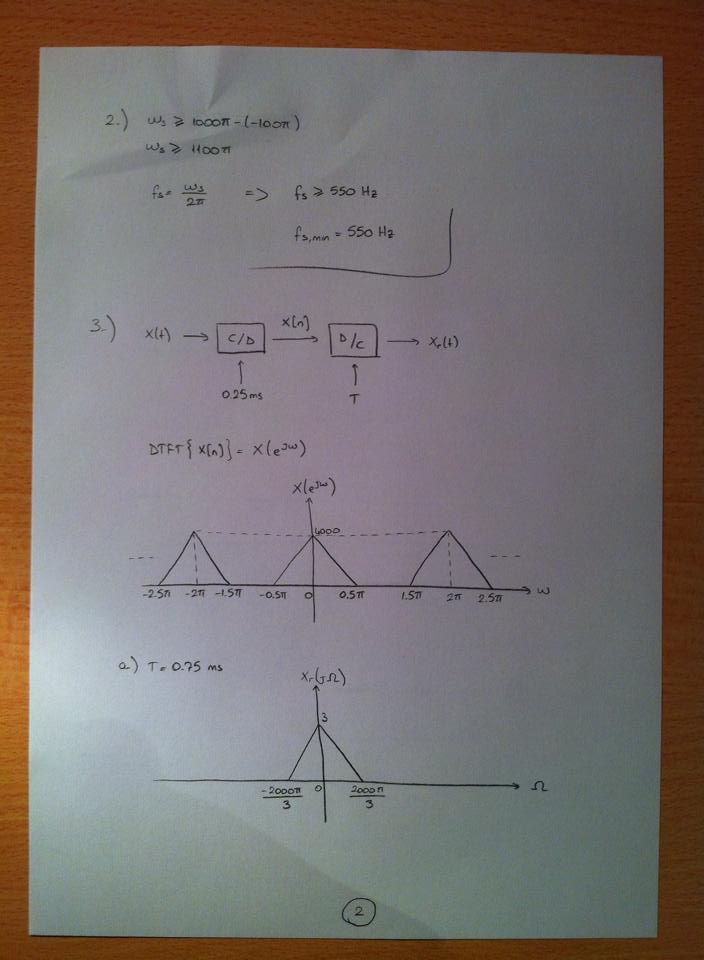 2.) ωs ⩾ 1000π-(-100π)
ωs ⩾ 1100π
fs = ωs/2π => fs ⩾ 550 Hz
fs,min = 550 Hz
3.) X(t) → C/D X[n] → D/C → Xr(t)
0.25ms T
DTFT{X[n]} = X(e^jω)
X(e^jω)
4000
-2.5π -2π -1.5π -0.5π 0 0.5π 1.5π 2π 2.5π ω
a.) T = 0.75 ms
Xr(jΩ)
3
-2000π/3 0 2000π/3 Ω
2